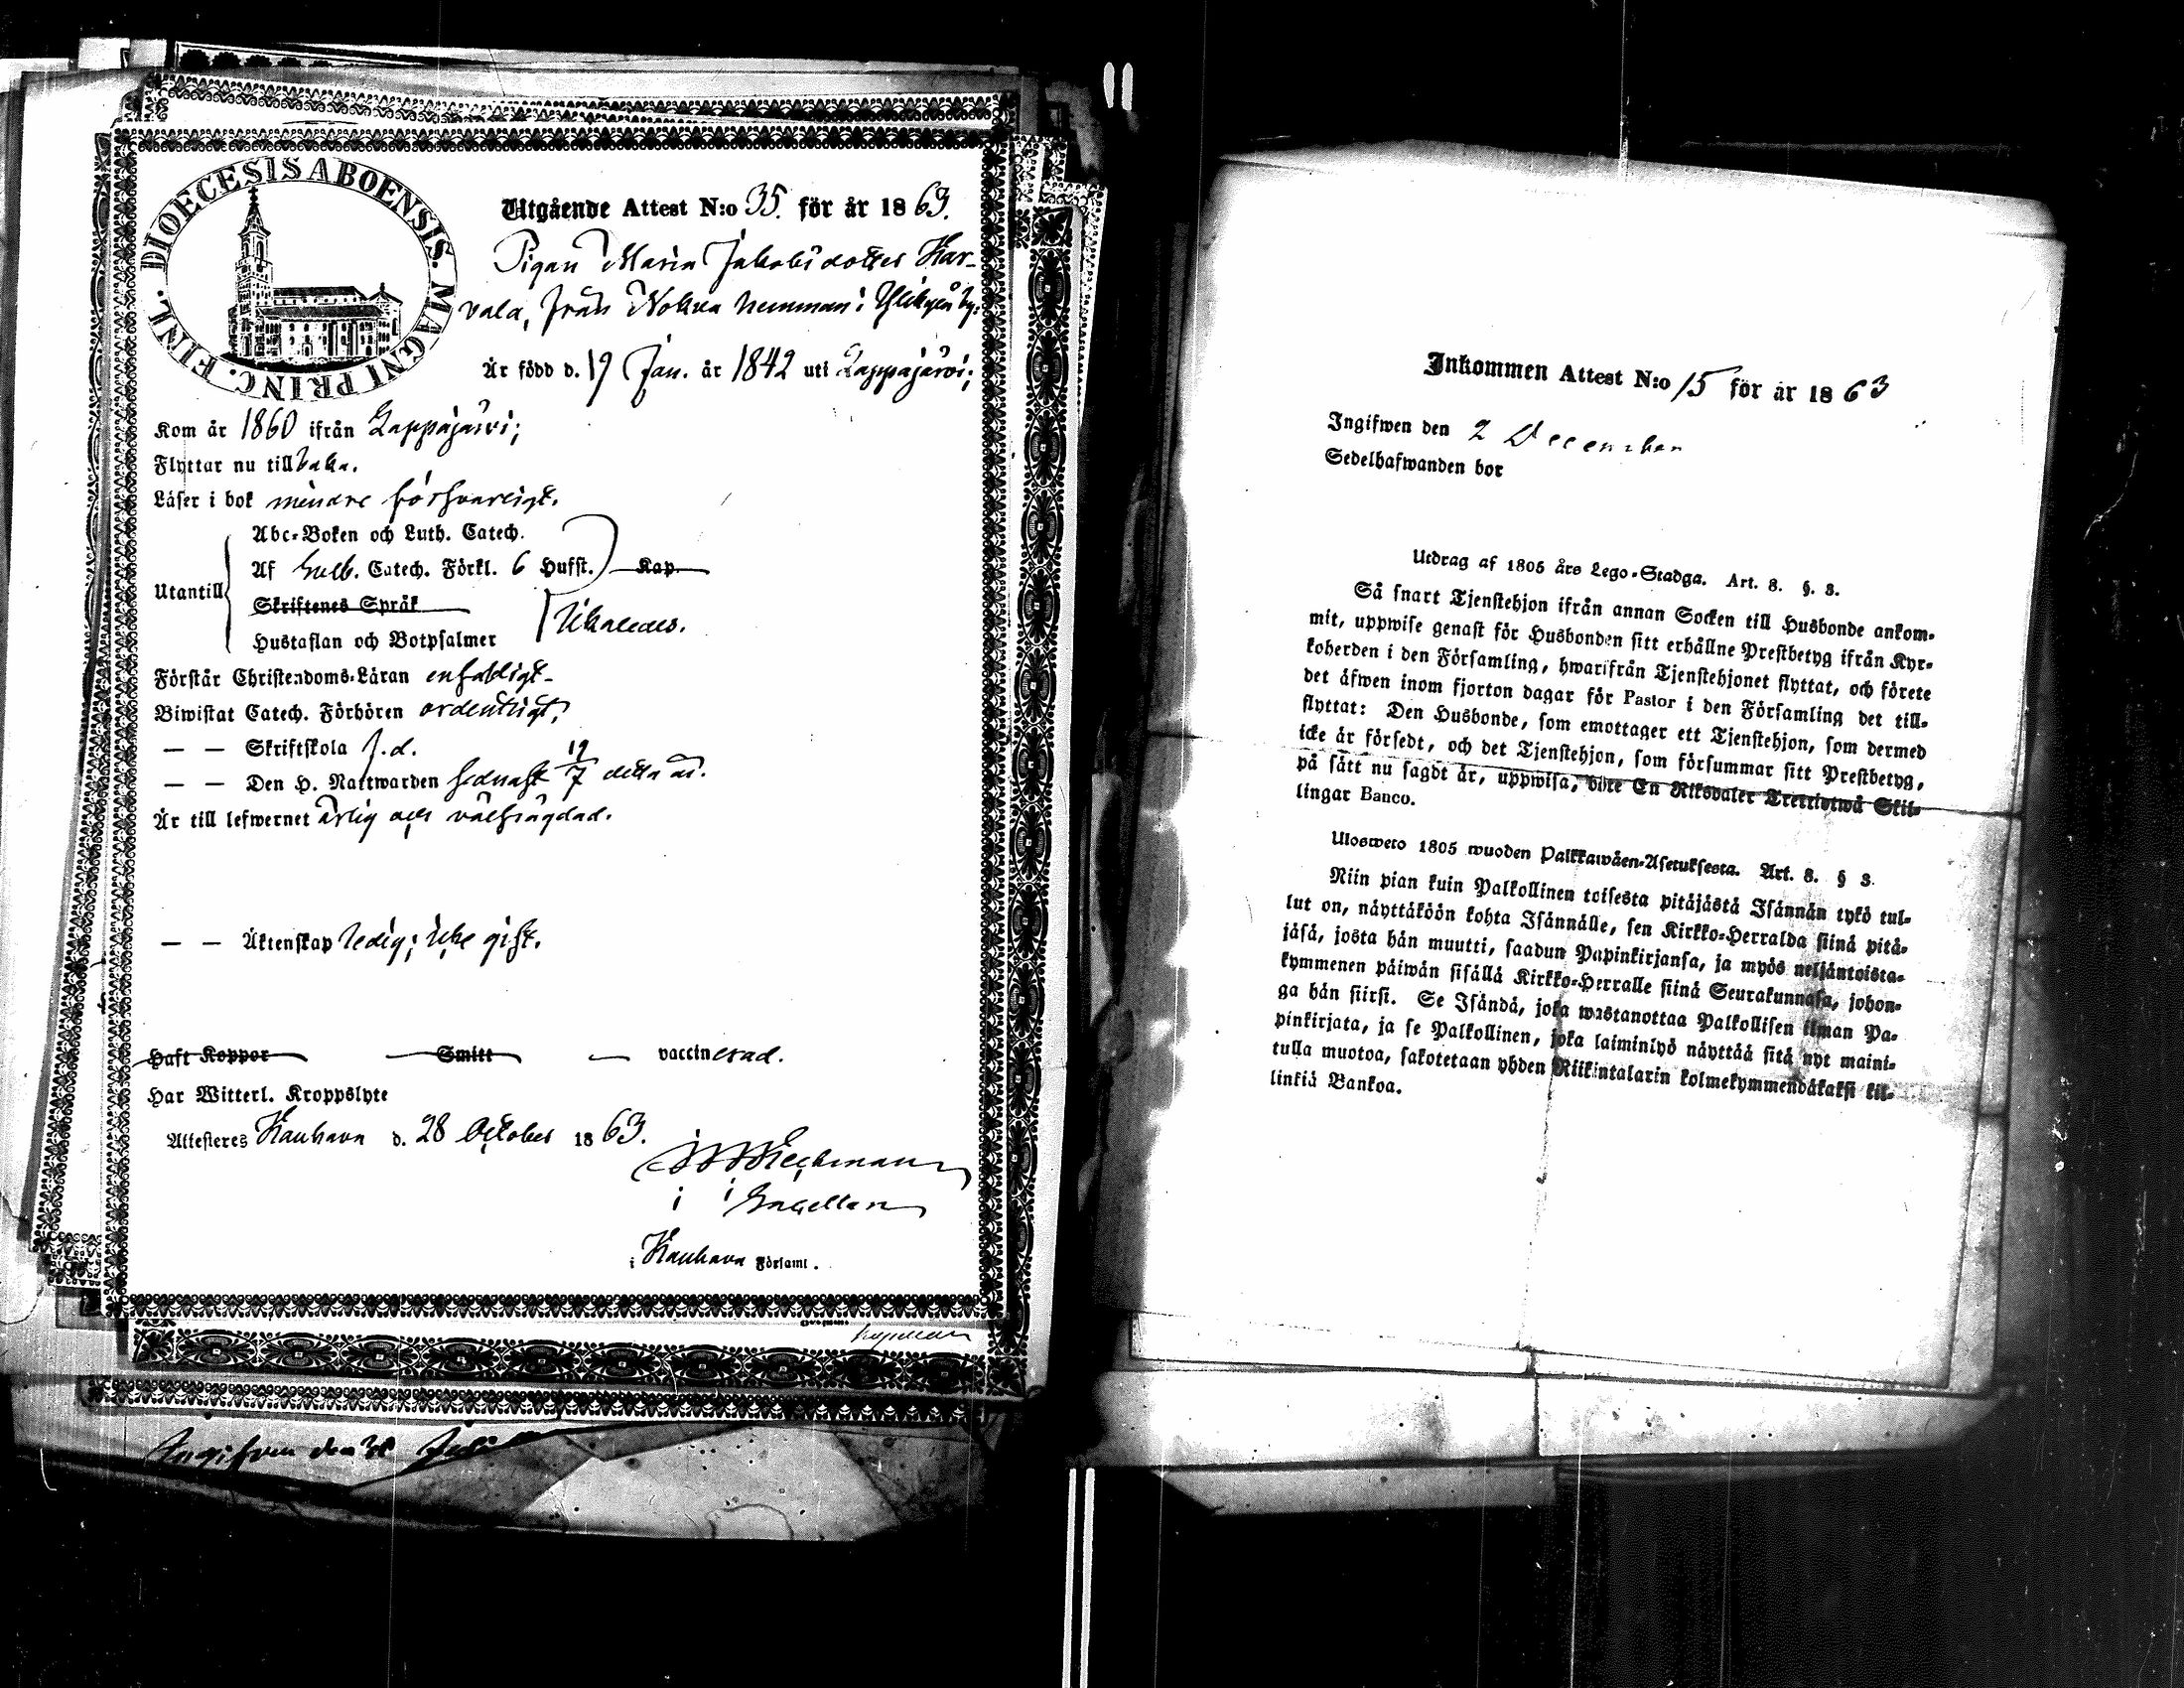 DIOECESIS ABOENSIS. MAGNI PRINC. FINL.
Utgående Attest N:o 35. för år 1863.
Pigan Maria Jakobsdotter Kar-
vala, från Nohva hemman i Ylikylä by.
Är född d. 19 Jan. år 1842 uti Lappajärvi;
Kom år 1860 ifrån Lappajärvi;
Flyttar nu tillbaka.
Läser i bok mindre försvarligt.
Abc-Boken och Luth. Catech.
Af Sveb. Catech. Förkl. 6 Hufst. Kap.
Utantill
Skriftenes Språk
Hustaflan och Botpsalmer Likaledes.
Förstår Christendoms-Läran enfaldigt-
Biwistat Catech. Förhören ordentligt,
— — Skriftskola f.d.
— — Den H. Nattwarden sednast 19/7 detta år.
Är till lefwernet ärlig och välfrägdad.
— — Äktenskap ledig; icke gift.
Haft Koppor Smitt — vaccinerad.
Har Witterl. Kroppslyte
Attesteres Kauhava d. 28 October 1863.
i Kauhava Församl.
Ingifven den Juli
Inkommen Attest N:o 15 för år 1863
Ingifwen den 2 December
Sedelhafwanden bor
Utdrag af 1805 års Lego-Stadga. Art. 8. §. 3.
Så snart Tjenstehjon ifrån annan Socken till Husbonde ankom-
mit, uppwise genast för Husbonden sitt erhållne Prestbetyg ifrån Kyr-
koherden i den Församling, hwarifrån Tjenstehjonet flyttat, och förete
det äfwen inom fjorton dagar för Pastor i den Församling det till-
flyttat: Den Husbonde, som emottager ett Tjenstehjon, som dermed
icke är försedt, och det Tjenstehjon, som försummar sitt Prestbetyg,
på sätt nu sagdt är, uppwisa, böte En Riksdaler Trettiotwå Skil-
lingar Banco.
Ulosweto 1805 wuoden Palkkawäen-Asetuksesta. Art. 8. § 3.
Niin pian kuin Palkollinen toisesta pitäjästä Isännän tykö tul-
lut on, näyttäköön kohta Isännälle, sen Kirkko-Herralda siinä pitä-
jäsä, josta hän muutti, saadun Papinkirjansa, ja myös neljäntoista-
kymmenen päiwän sisällä Kirkko-Herralle siinä Seurakunnasa, johon-
ga hän siirsi. Se Isändä, joka wastanottaa Palkollisen ilman Pa-
pinkirjata, ja se Palkollinen, joka laiminlyö näyttää sitä nyt maini-
tulla muotoa, sakotetaan yhden Riikintalarin kolmekymmendäkaksi kil-
linkiä Bankoa.